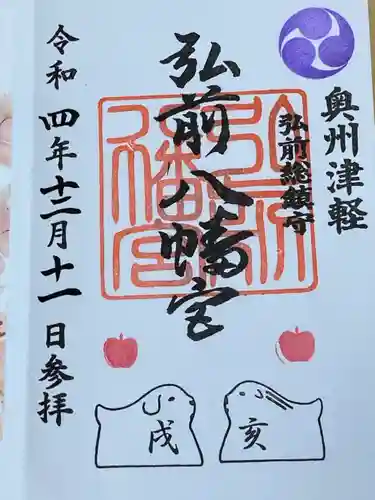 奥州津軽
弘前総鎮守
弘前八幡宮
弘前八幡宮
令和四年十二月十一日参拝
戌
亥